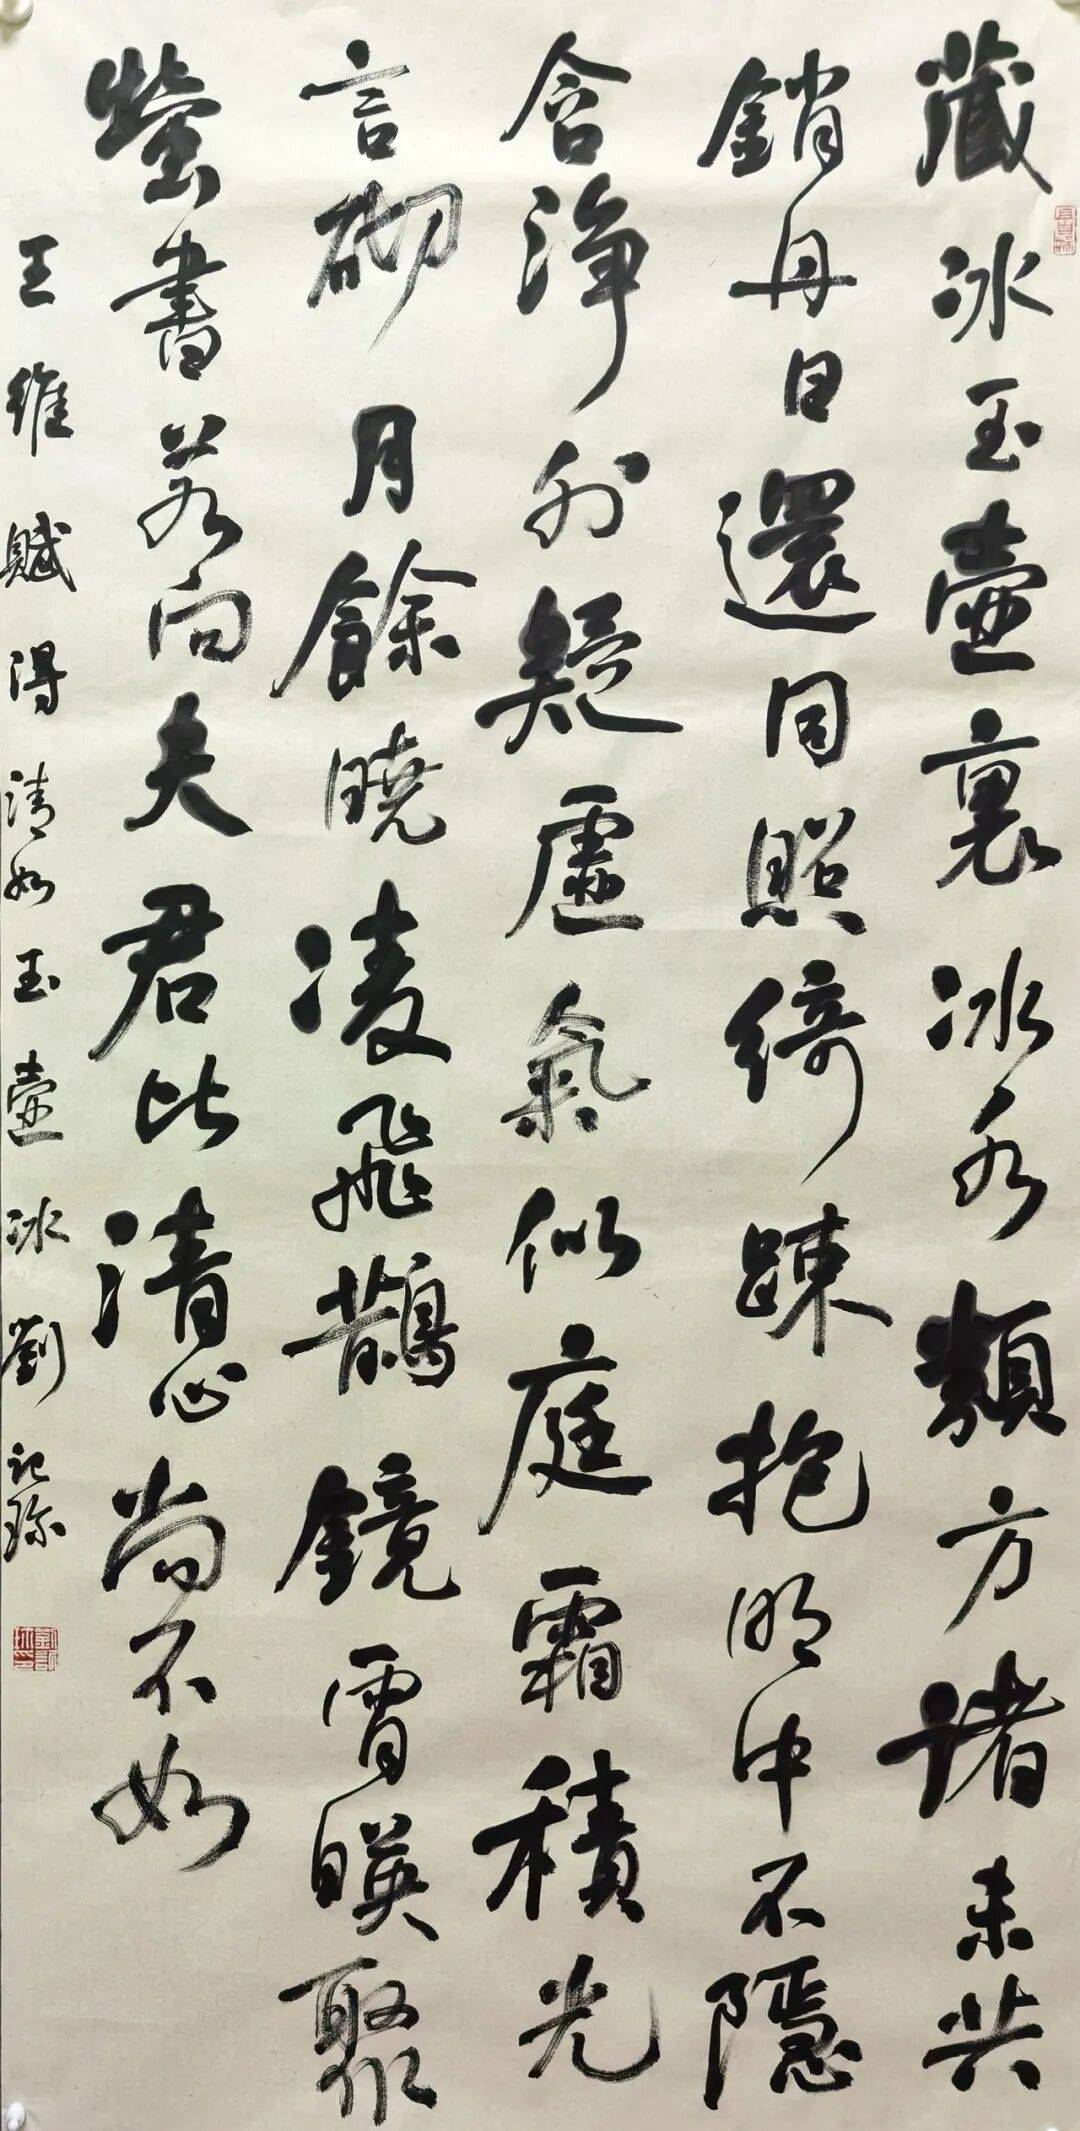 藏冰玉壺裏冰水類方諸未共
銷丹日還同照綺踈抱明中不隱
含淨外疑虛氣似庭霜積光
言砌月餘曉凌飛鵲鏡宵暎聚
螢書若向夫君比清心尚不如
王維賦得清如玉壺冰劉記